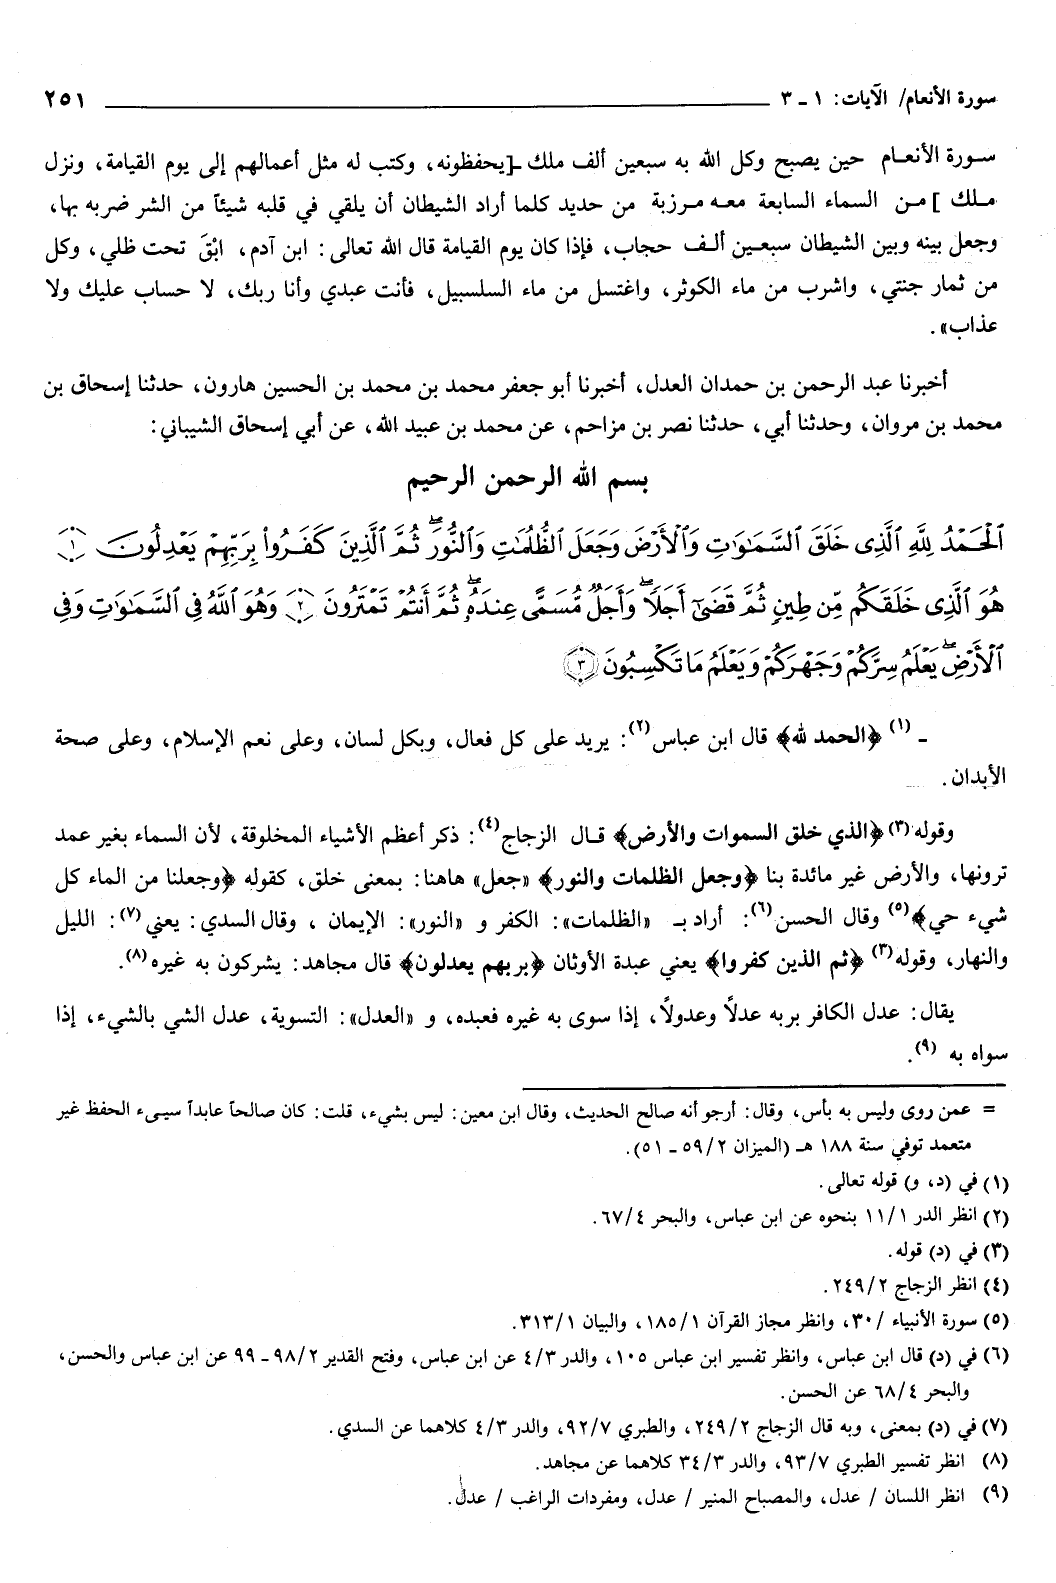 سورة الأنعام/ الآيات: ١ ـ ٣ ٢٥١
سورة الأنعام حين يصبح وكل الله به سبعين ألف ملك ـ[يحفظونه، وكتب له مثل أعمالهم إلى يوم القيامة، ونزل
ملك ] من السماء السابعة معه مرزبة من حديد كلما أراد الشيطان أن يلقي في قلبه شيئاً من الشر ضربه بها،
وجعل بينه وبين الشيطان سبعين ألف حجاب، فإذا كان يوم القيامة قال الله تعالى: ابن آدم، ابْقَ تحت ظلي، وكل
من ثمار جنتي، واشرب من ماء الكوثر، واغتسل من ماء السلسبيل، فأنت عبدي وأنا ربك، لا حساب عليك ولا
عذاب».
أخبرنا عبد الرحمن بن حمدان العدل، أخبرنا أبو جعفر محمد بن محمد بن الحسين هارون، حدثنا إسحاق بن
محمد بن مروان، وحدثنا أبي، حدثنا نصر بن مزاحم، عن محمد بن عبيد الله، عن أبي إسحاق الشيباني:
بسم الله الرحمن الرحيم
ٱلْحَمْدُ لِلَّهِ ٱلَّذِى خَلَقَ ٱلسَّمَٰوَٰتِ وَٱلْأَرْضَ وَجَعَلَ ٱلظُّلُمَٰتِ وَٱلنُّورَ ۖ ثُمَّ ٱلَّذِينَ كَفَرُوا۟ بِرَبِّهِمْ يَعْدِلُونَ ١
هُوَ ٱلَّذِى خَلَقَكُم مِّن طِينٍ ثُمَّ قَضَىٰٓ أَجَلًا ۖ وَأَجَلٌ مُّسَمًّى عِندَهُۥ ۖ ثُمَّ أَنتُمْ تَمْتَرُونَ ٢ وَهُوَ ٱللَّهُ فِى ٱلسَّمَٰوَٰتِ وَفِى
ٱلْأَرْضِ ۖ يَعْلَمُ سِرَّكُمْ وَجَهْرَكُمْ وَيَعْلَمُ مَا تَكْسِبُونَ ٣
ـ (١) ﴿الحمد لله﴾ قال ابن عباس(٢): يريد على كل فعال، وبكل لسان، وعلى نعم الإسلام، وعلى صحة
الأبدان.
وقوله(٣) ﴿الذي خلق السموات والأرض﴾ قال الزجاج(٤): ذكر أعظم الأشياء المخلوقة، لأن السماء بغير عمد
ترونها، والأرض غير مائدة بنا ﴿وجعل الظلمات والنور﴾ «جعل» هاهنا: بمعنى خلق، كقوله ﴿وجعلنا من الماء كل
شيء حي﴾(٥) وقال الحسن(٦): أراد بـ «الظلمات»: الكفر و «النور»: الإيمان ، وقال السدي: يعني(٧): الليل
والنهار، وقوله(٣) ﴿ثم الذين كفروا﴾ يعني عبدة الأوثان ﴿بربهم يعدلون﴾ قال مجاهد: يشركون به غيره(٨).
يقال: عدل الكافر بربه عدلاً وعدولاً، إذا سوى به غيره فعبده، و «العدل»: التسوية، عدل الشي بالشيء، إذا
سواه به (٩).
= عمن روى وليس به بأس، وقال: أرجو أنه صالح الحديث، وقال ابن معين: ليس بشيء، قلت: كان صالحاً عابداً سيىء الحفظ غير
متعمد توفي سنة ١٨٨ هـ (الميزان ٥٩/٢ ـ ٥١).
(١) في (د، و) قوله تعالى.
(٢) انظر الدر ١١/١ بنحوه عن ابن عباس، والبحر ٦٧/٤.
(٣) في (د) قوله.
(٤) انظر الزجاج ٢٤٩/٢.
(٥) سورة الأنبياء /٣٠، وانظر مجاز القرآن ١٨٥/١، والبيان ٣١٣/١.
(٦) في (د) قال ابن عباس، وانظر تفسير ابن عباس ١٠٥، والدر ٤/٣ عن ابن عباس، وفتح القدير ٩٨/٢ ـ ٩٩ عن ابن عباس والحسن،
والبحر ٦٨/٤ عن الحسن.
(٧) في (د) بمعنى، وبه قال الزجاج ٢٤٩/٢، والطبري ٩٢/٧، والدر ٤/٣ كلاهما عن السدي.
(٨) انظر تفسير الطبري ٩٣/٧، والدر ٣٤/٣ كلاهما عن مجاهد.
(٩) انظر اللسان / عدل، والمصباح المنير / عدل، ومفردات الراغب / عدل.